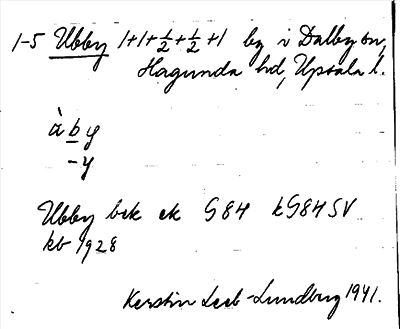 1-5 Ubby 1+1+½+½+1 by i Dalby sn,
Hagunda hd, Upsala l.
àby
-y
Ubby bek ek G84 kG84SV
kb 1928
Kerstin Leeb-Lundberg 1941.